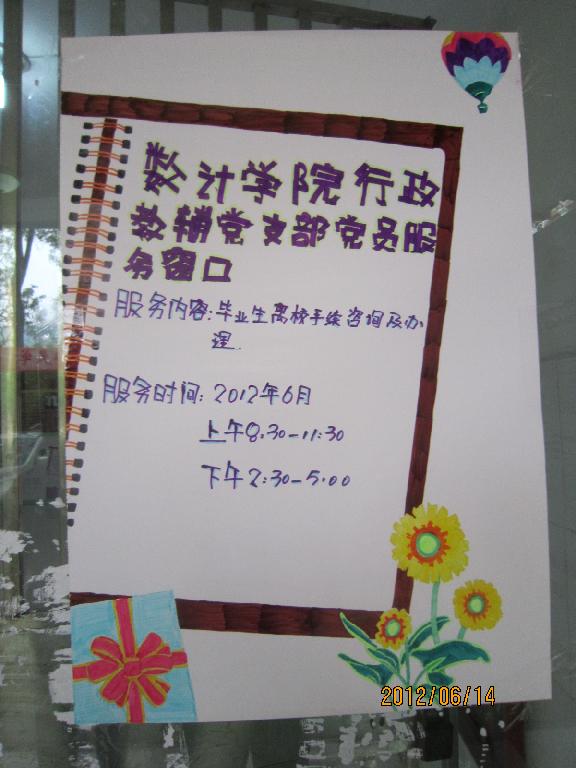 数计学院行政
教辅党支部党员服
务窗口
服务内容:毕业生离校手续咨询及办
理.
服务时间: 2012年6月
上午8.30-11:30
下午2:30-5.00
2012/06/14